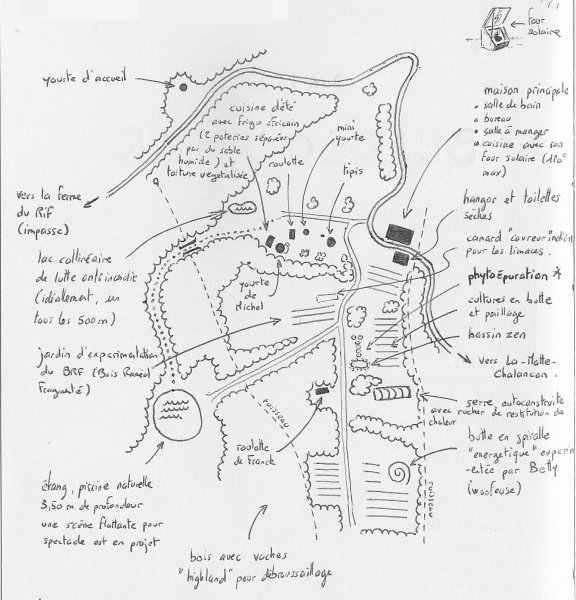 four
solaire
yourte d'accueil
cuisine d'été
avec frigo africain
(2 poteries séparées
par du sable
humide) et
toiture végétalisée
roulotte
mini
yourte
tipis
maison principale
• salle de bain
• bureau
• salle à manger
• cuisine avec son
four solaire (120°
max)
vers la ferme
du Rif
(impasse)
hangar et toilettes
sèches
canard "coureur" indien
pour les limaces.
lac collinéaire
de lutte antiincendie
(idéalement, un
tous les 500m)
yourte
de
Michel
phytoépuration *
cultures en butte
et paillage
bassin zen
jardin d'expérimentation
du BRF (Bois Raméal
Fragmenté)
vers La-Motte-
Chalancon.
RUISSEAU
serre autoconstruite
avec rocher de restitution de
chaleur
roulotte
de Franck
butte en spiralle
"energetique" experim
-entée par Betty
(woofeuse)
RUISSEAU
étang, piscine naturelle
3,50 m de profondeur
une scène flottante pour
spectacle est en projet
bois avec vaches
"highland" pour débroussaillage